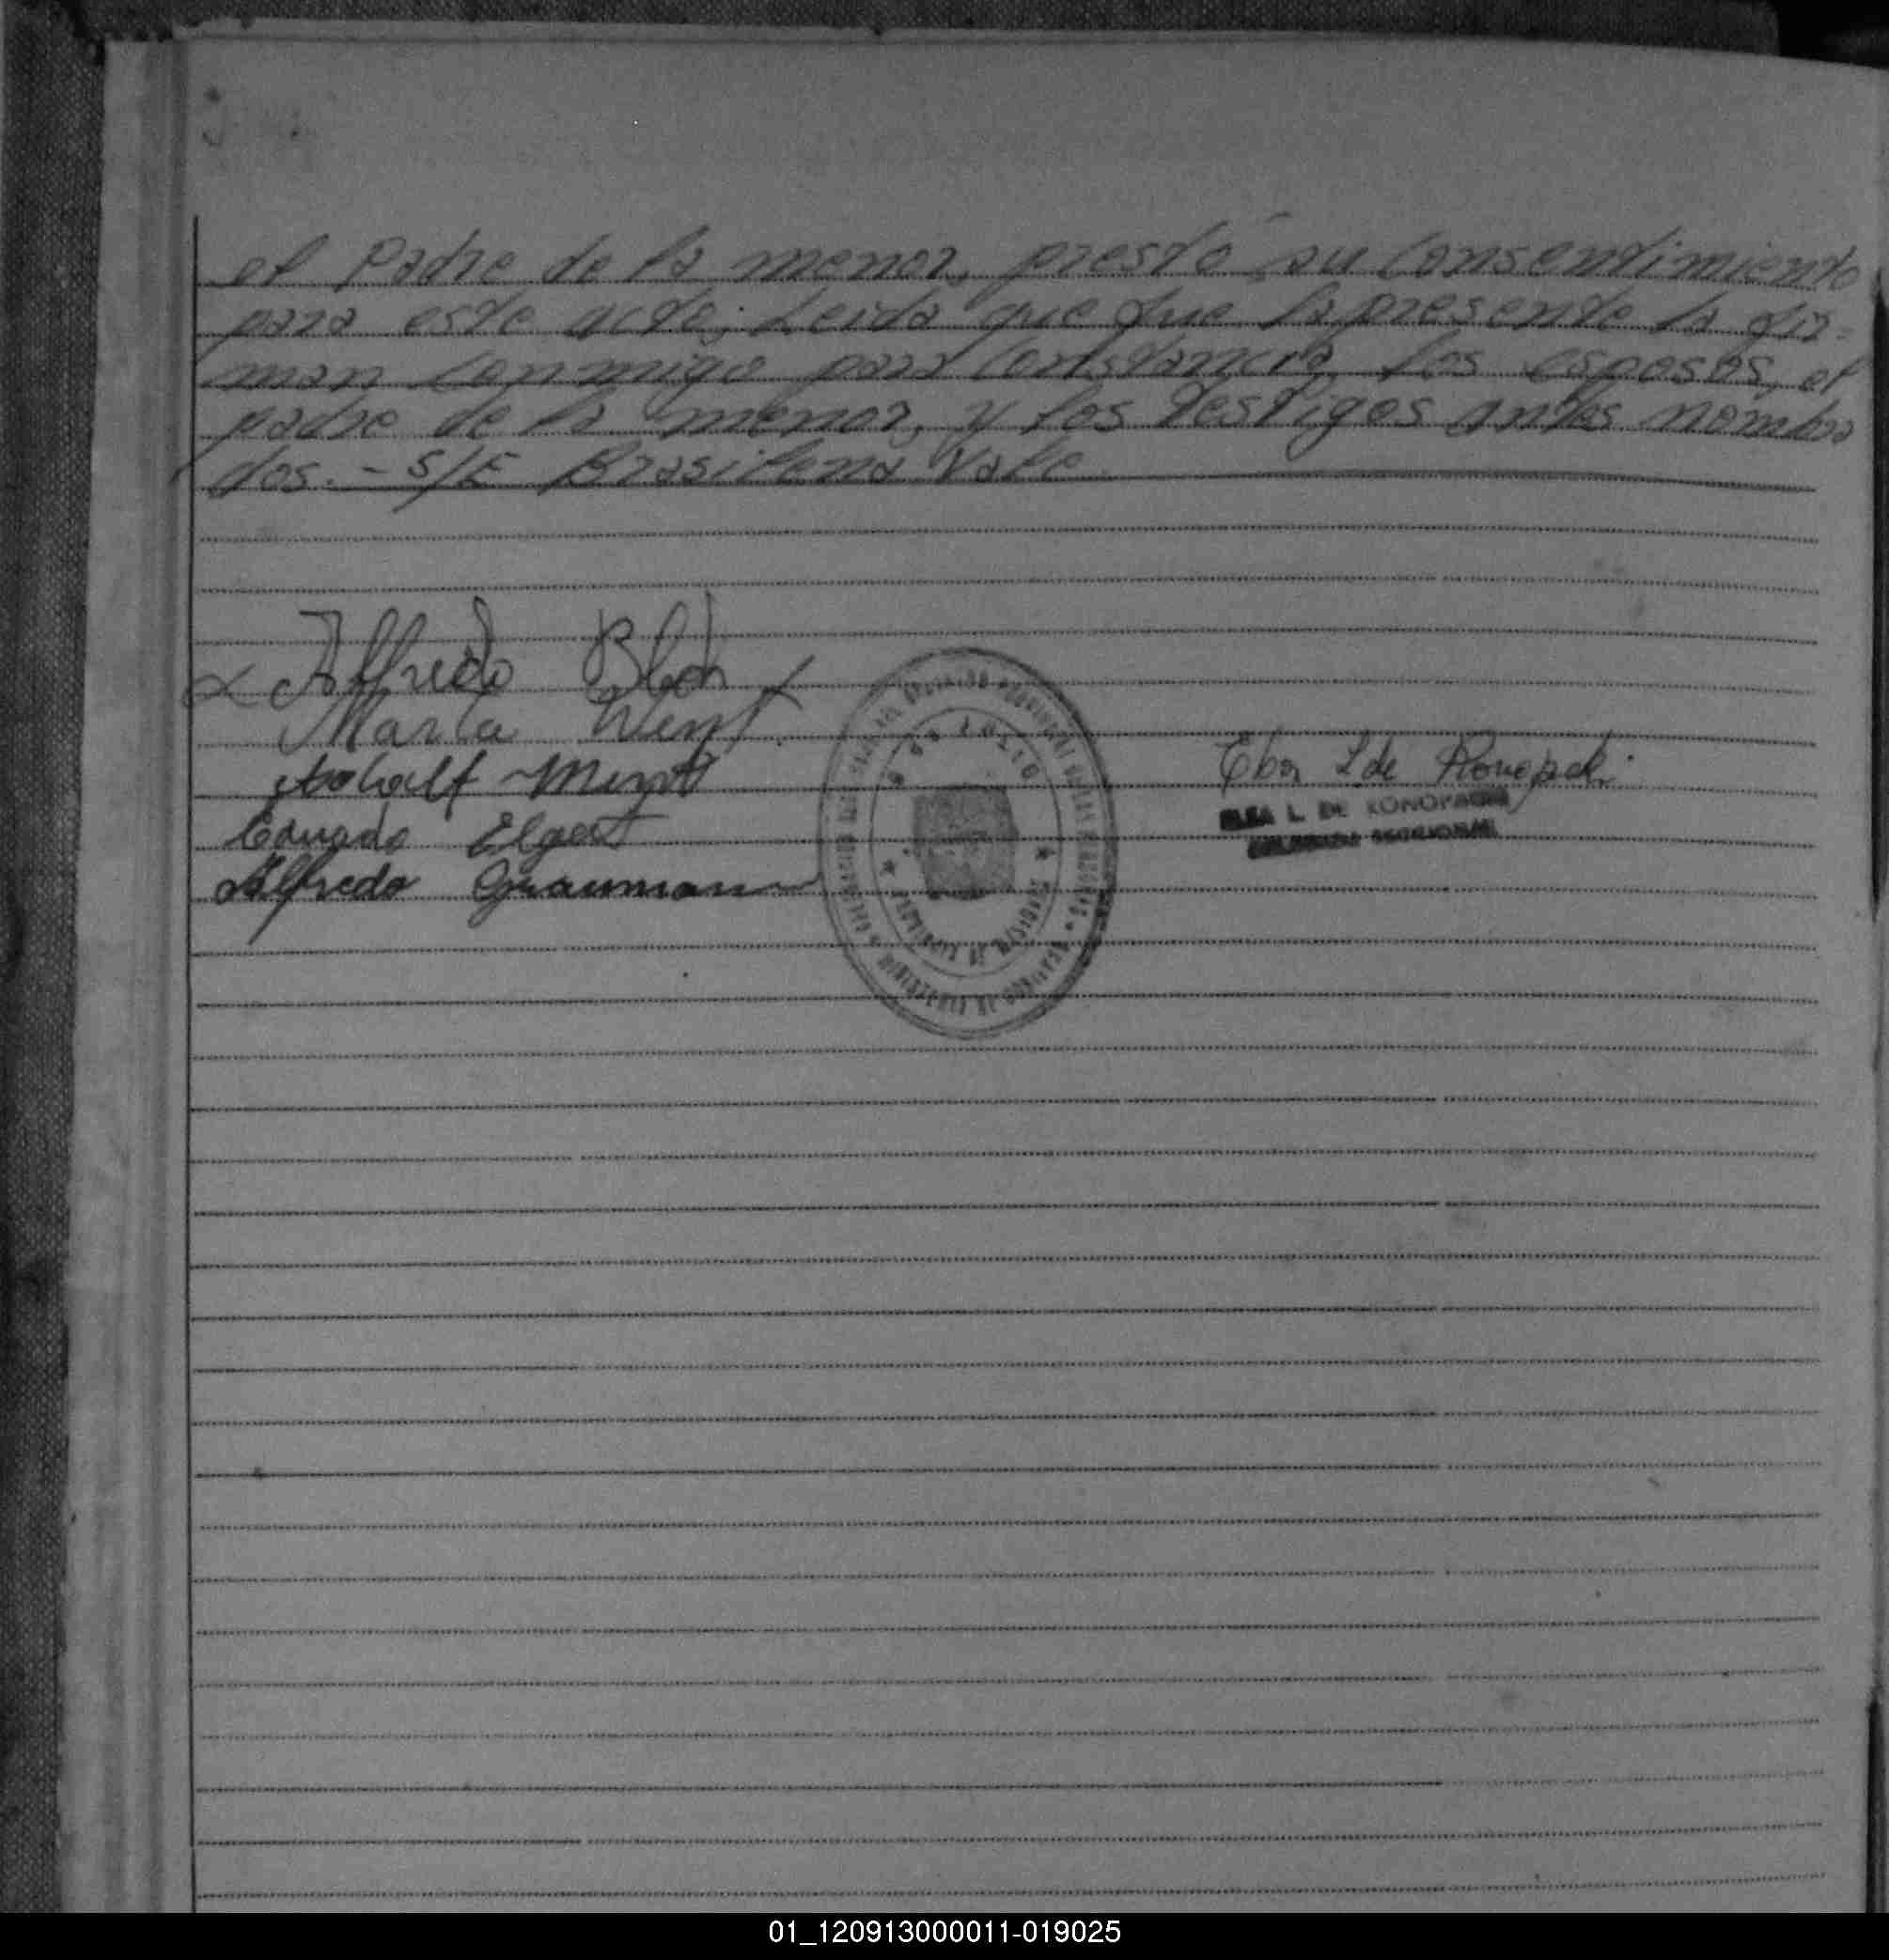 el Padre de la menor, presto su Consentimiento
para este acto; Leida que fue la presente la fir-
man conmigo para constancia, los esposos, el
padre de la menor, y los testigos antes nombra
dos. - S/E Brasilena Vale
Alfredo
Marta Went
Went
Eduardo Elgert
Alfredo Graumann
L. de
L. DE KONOPACKI
01_120913000011-019025